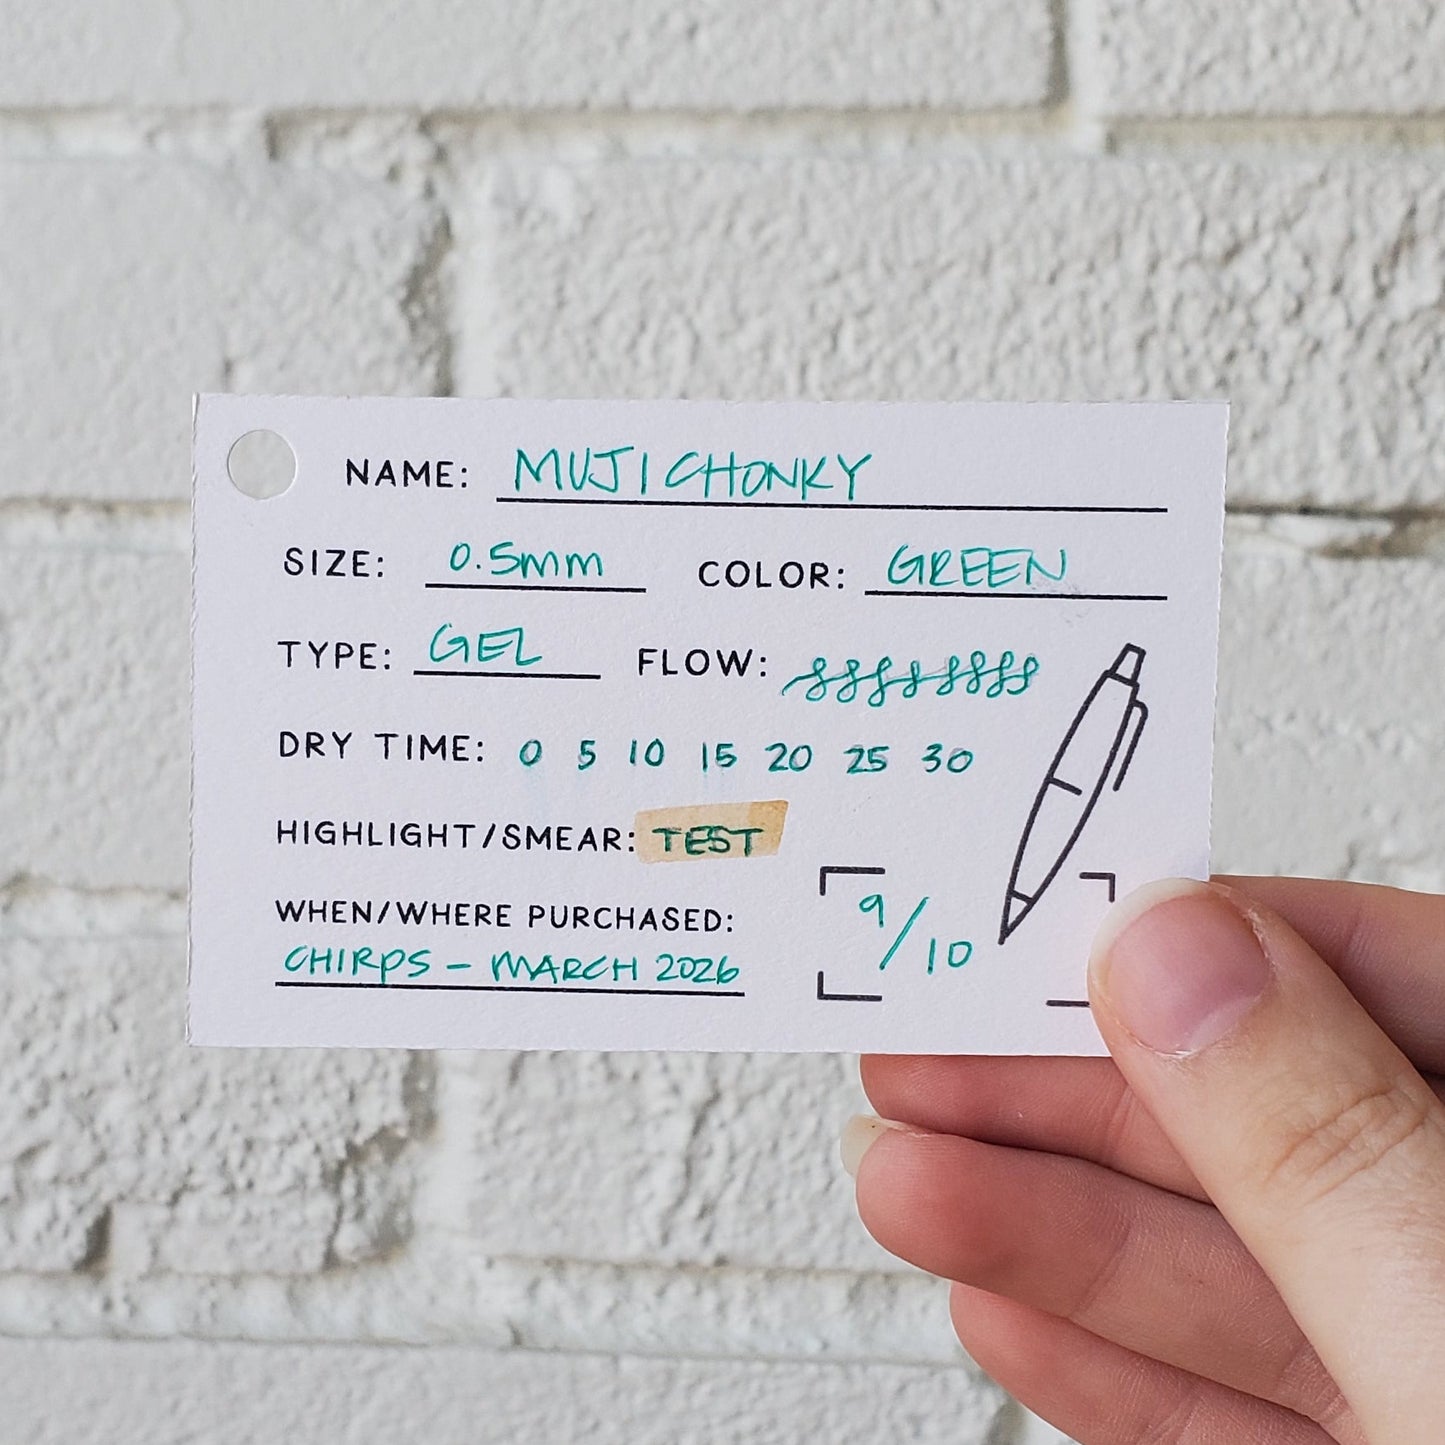 NAME: MUJI CHONKY
SIZE: 0.5mm COLOR: GREEN
TYPE: GEL FLOW:
DRY TIME: 0 5 10 15 20 25 30
HIGHLIGHT/SMEAR: TEST
WHEN/WHERE PURCHASED:
CHIRPS - MARCH 2026
9/10